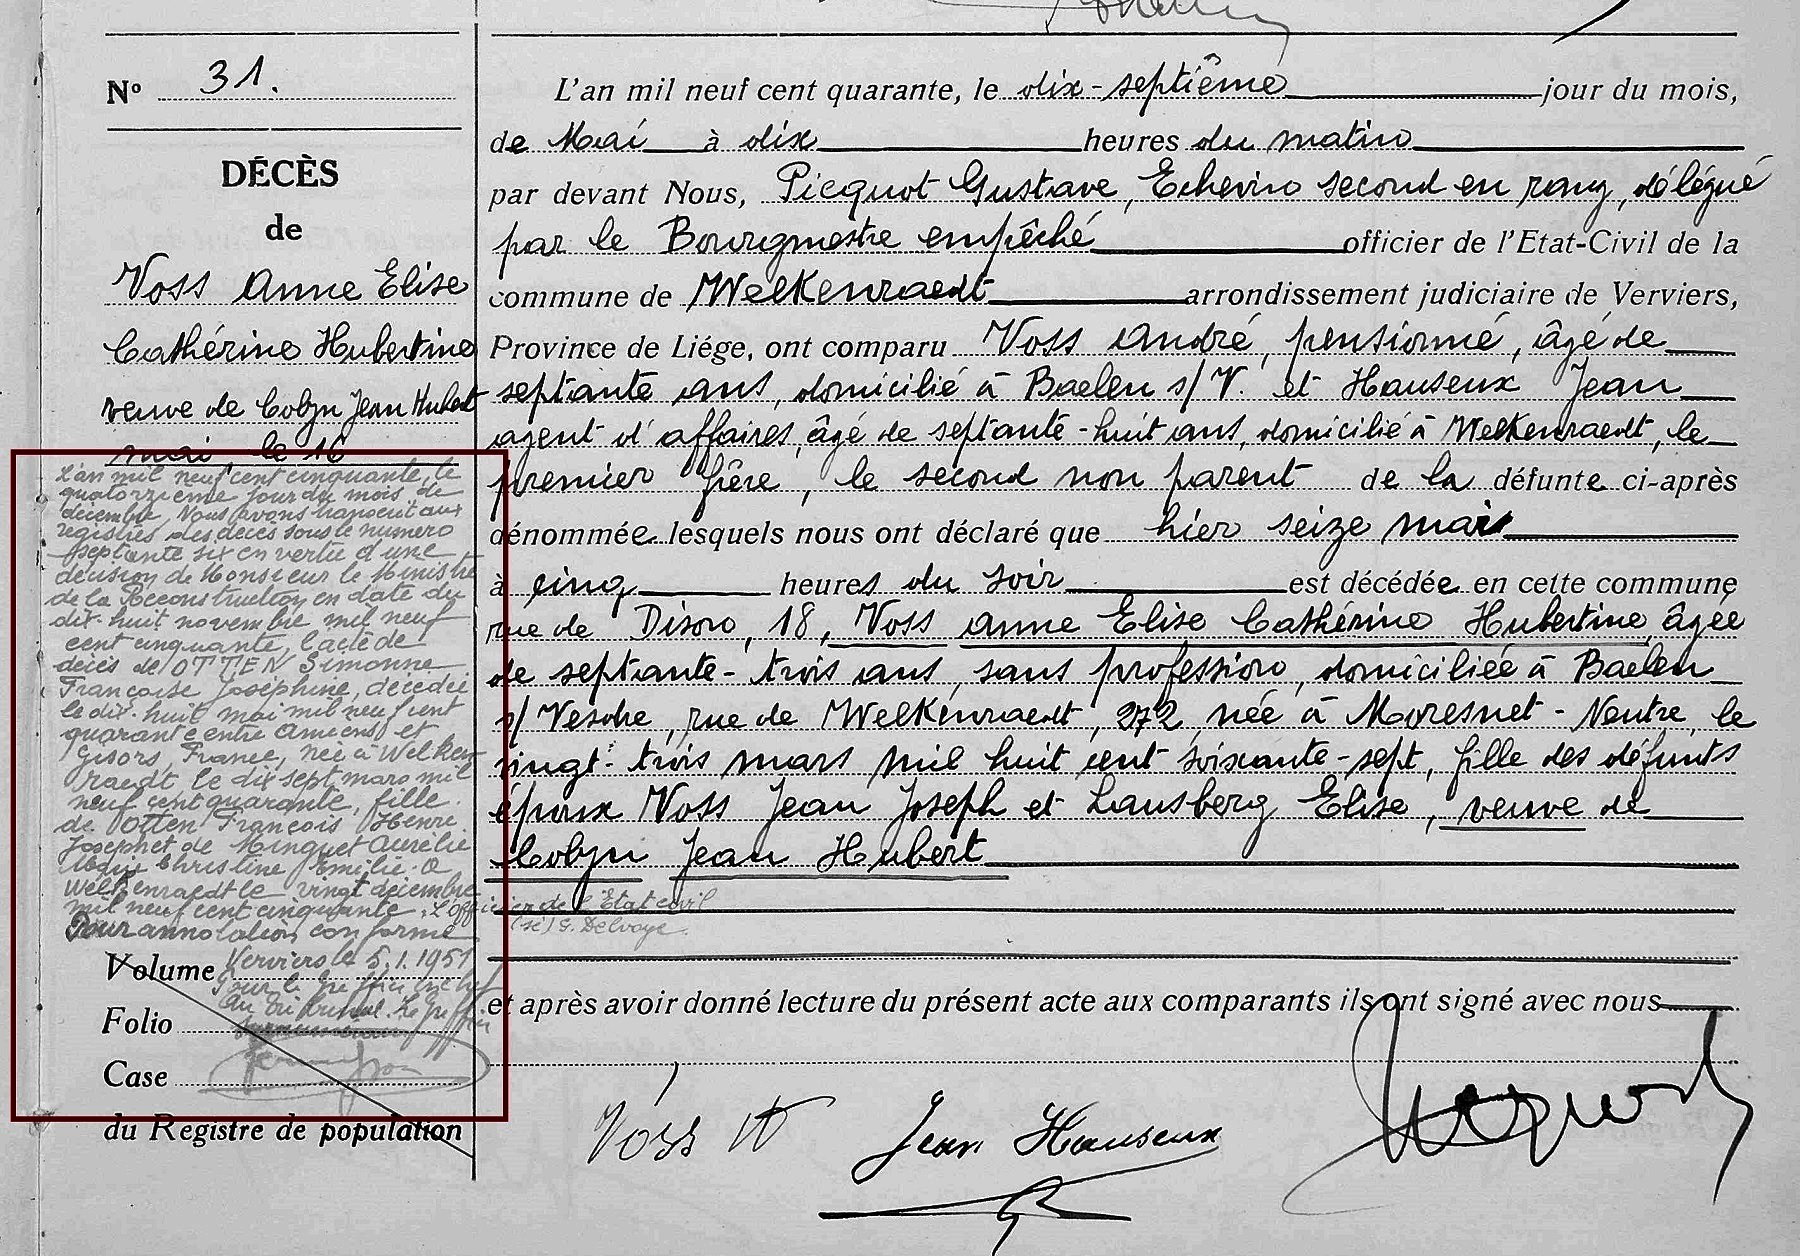 N° 31.
DÉCÈS
de
Voss Anne Elise
Cathérine Hubertine
veuve de Cobyn Jean Hubert
mai le 16
L'an mil neuf cent cinquante, le
quatorzieme jour du mois de
décembre, Nous avons transcrit aux
registres des décès sous le numero
septante six en vertu d'une
décision de Monsieur le Ministre
de la Reconstruction en date du
dix-huit novembre mil neuf
cent cinquante, l'acte de
décès de OTTEN Simonne
Françoise Joséphine, décédée
le dix-huit mai mil neuf cent
quarante entre Amiens et
Gisors, France, née à Welken
raedt le dix sept mars mil
neuf cent quarante, fille
de Otten François Henri
Joseph et de Minguet Aurélie
Marie Christine Emilie. A
Welkenraedt le vingt décembre
mil neuf cent cinquante. L'officier de l'Etat civil
(sé) G. Delvoye.
Pour annotation conforme
Verviers le 5.1.1951
Pour le Greffier en chef
du Tribunal. Le Greffier
Volume
Folio
Case
du Registre de population
L'an mil neuf cent quarante, le dix-septième jour du mois,
de Mai à dix heures du matin
par devant Nous, Picquot Gustave, Echevin second en rang, délégué
par le Bourgmestre empêché officier de l'Etat-Civil de la
commune de Welkenraedt arrondissement judiciaire de Verviers,
Province de Liége, ont comparu Voss André, pensionné, âgé de
septante ans, domicilié à Baelen s/V. et Hauseux Jean
agent d'affaires, âgé de septante-huit ans, domicilié à Welkenraedt, le
premier frère, le second non parent de la défunte ci-après
dénommée lesquels nous ont déclaré que hier seize mai
à cinq heures du soir est décédée en cette commune
rue de Dison, 18, Voss Anne Elise Cathérine Hubertine, âgée
de septante-trois ans, sans profession, domiciliée à Baelen
s/Vesdre, rue de Welkenraedt, 272, née à Moresnet-Neutre, le
vingt-trois mars mil huit cent soixante-sept, fille des défunts
époux Voss Jean Joseph et Lansberg Elise, veuve de
Cobyn Jean Hubert
et après avoir donné lecture du présent acte aux comparants ils ont signé avec nous
Voss A
Jean Hauseux
Picquot